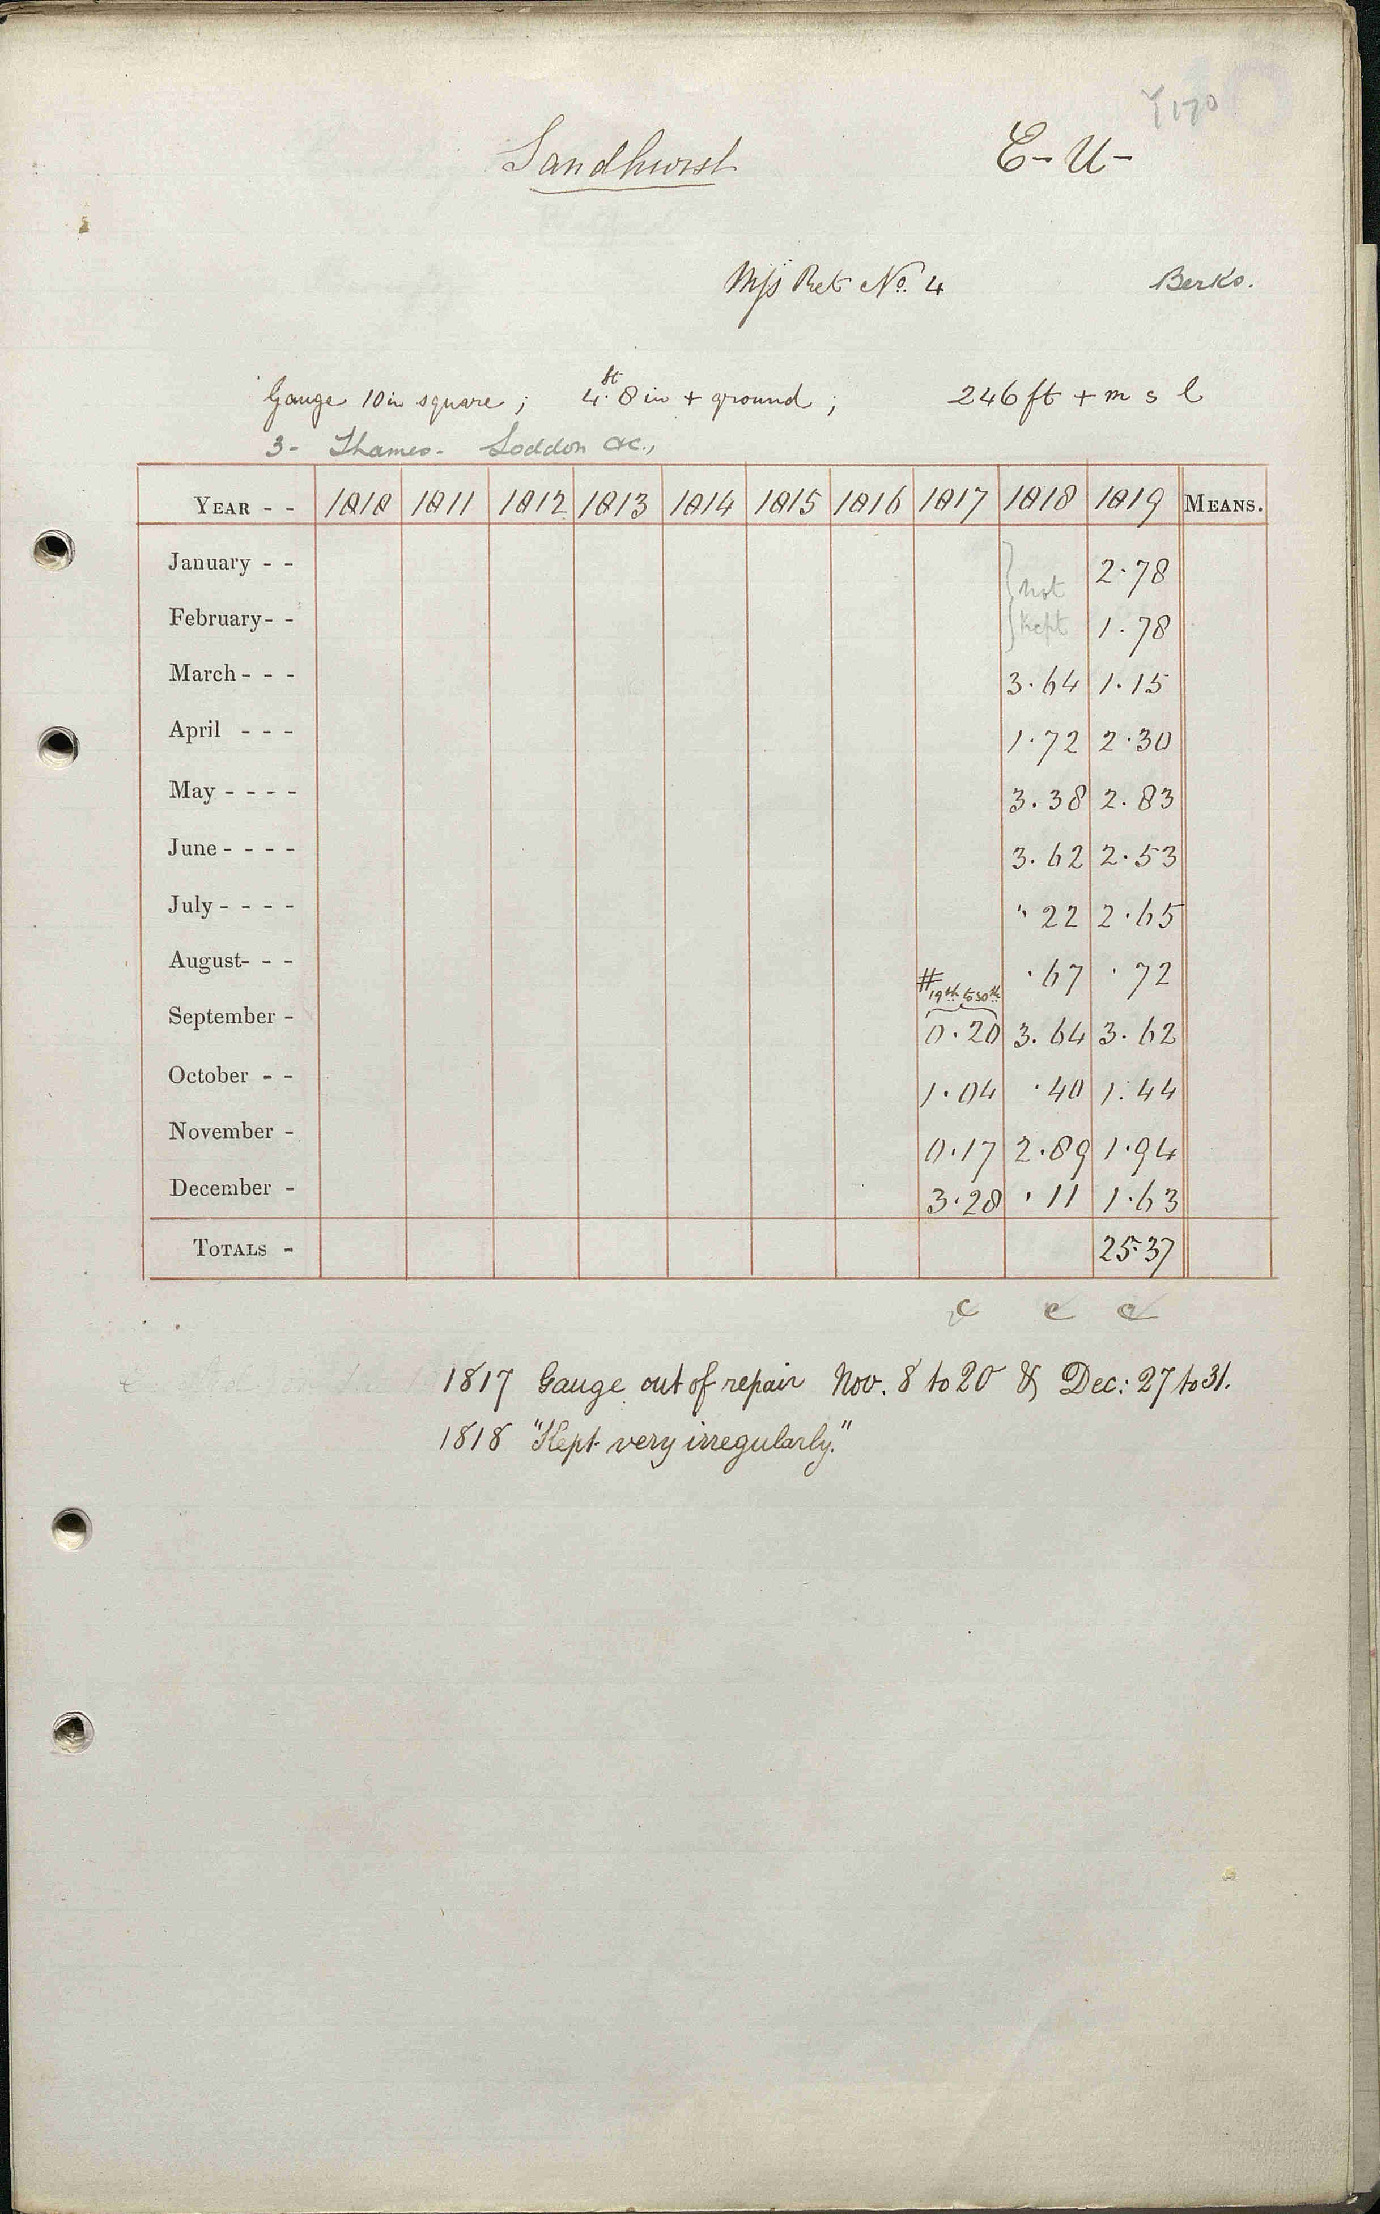 Y170
Sandhurst E - U -
Mss Ret No. 4 Berks.
Gauge 10 in square; 4 ft 8 in + ground; 246 ft + m s l
3 - Thames - Loddon &c.,
YEAR - - 1810 1811 1812 1813 1814 1815 1816 1817 1818 1819 MEANS.
January - - not 2.78
February - - kept 1.78
March - - - 3.64 1.15
April - - - 1.72 2.30
May - - - - 3.38 2.83
June - - - - 3.62 2.53
July - - - - " 22 2.65
August - - - .67 .72
# 19th to 30th
September - 0.20 3.64 3.62
October - - 1.04 .40 1.44
November - 0.17 2.89 1.94
December - 3.28 .11 1.63
TOTALS - 25.37
c c c
1817 Gauge out of repair Nov. 8 to 20 & Dec: 27 to 31.
1818 "Kept very irregularly."